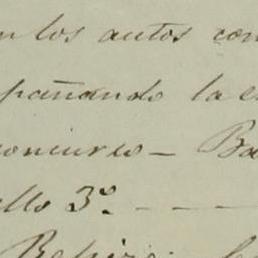 n los autos con
pañando la c
concurso - Ba
llo 3º. - - -